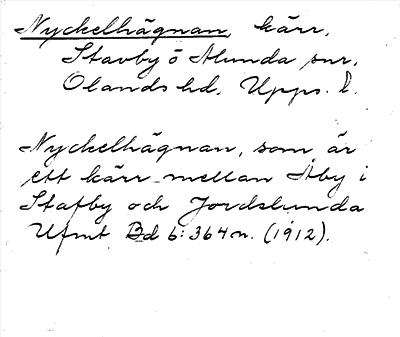 Nyckelhägnan, kärr,
Stavby o Alunda snr,
Olands hd, Upps. l.
Nyckelhägnan, som är
ett kärr mellan Åby i
Stafby och Jordslunda
Ufmt Bd 6: 364 n. (1912).